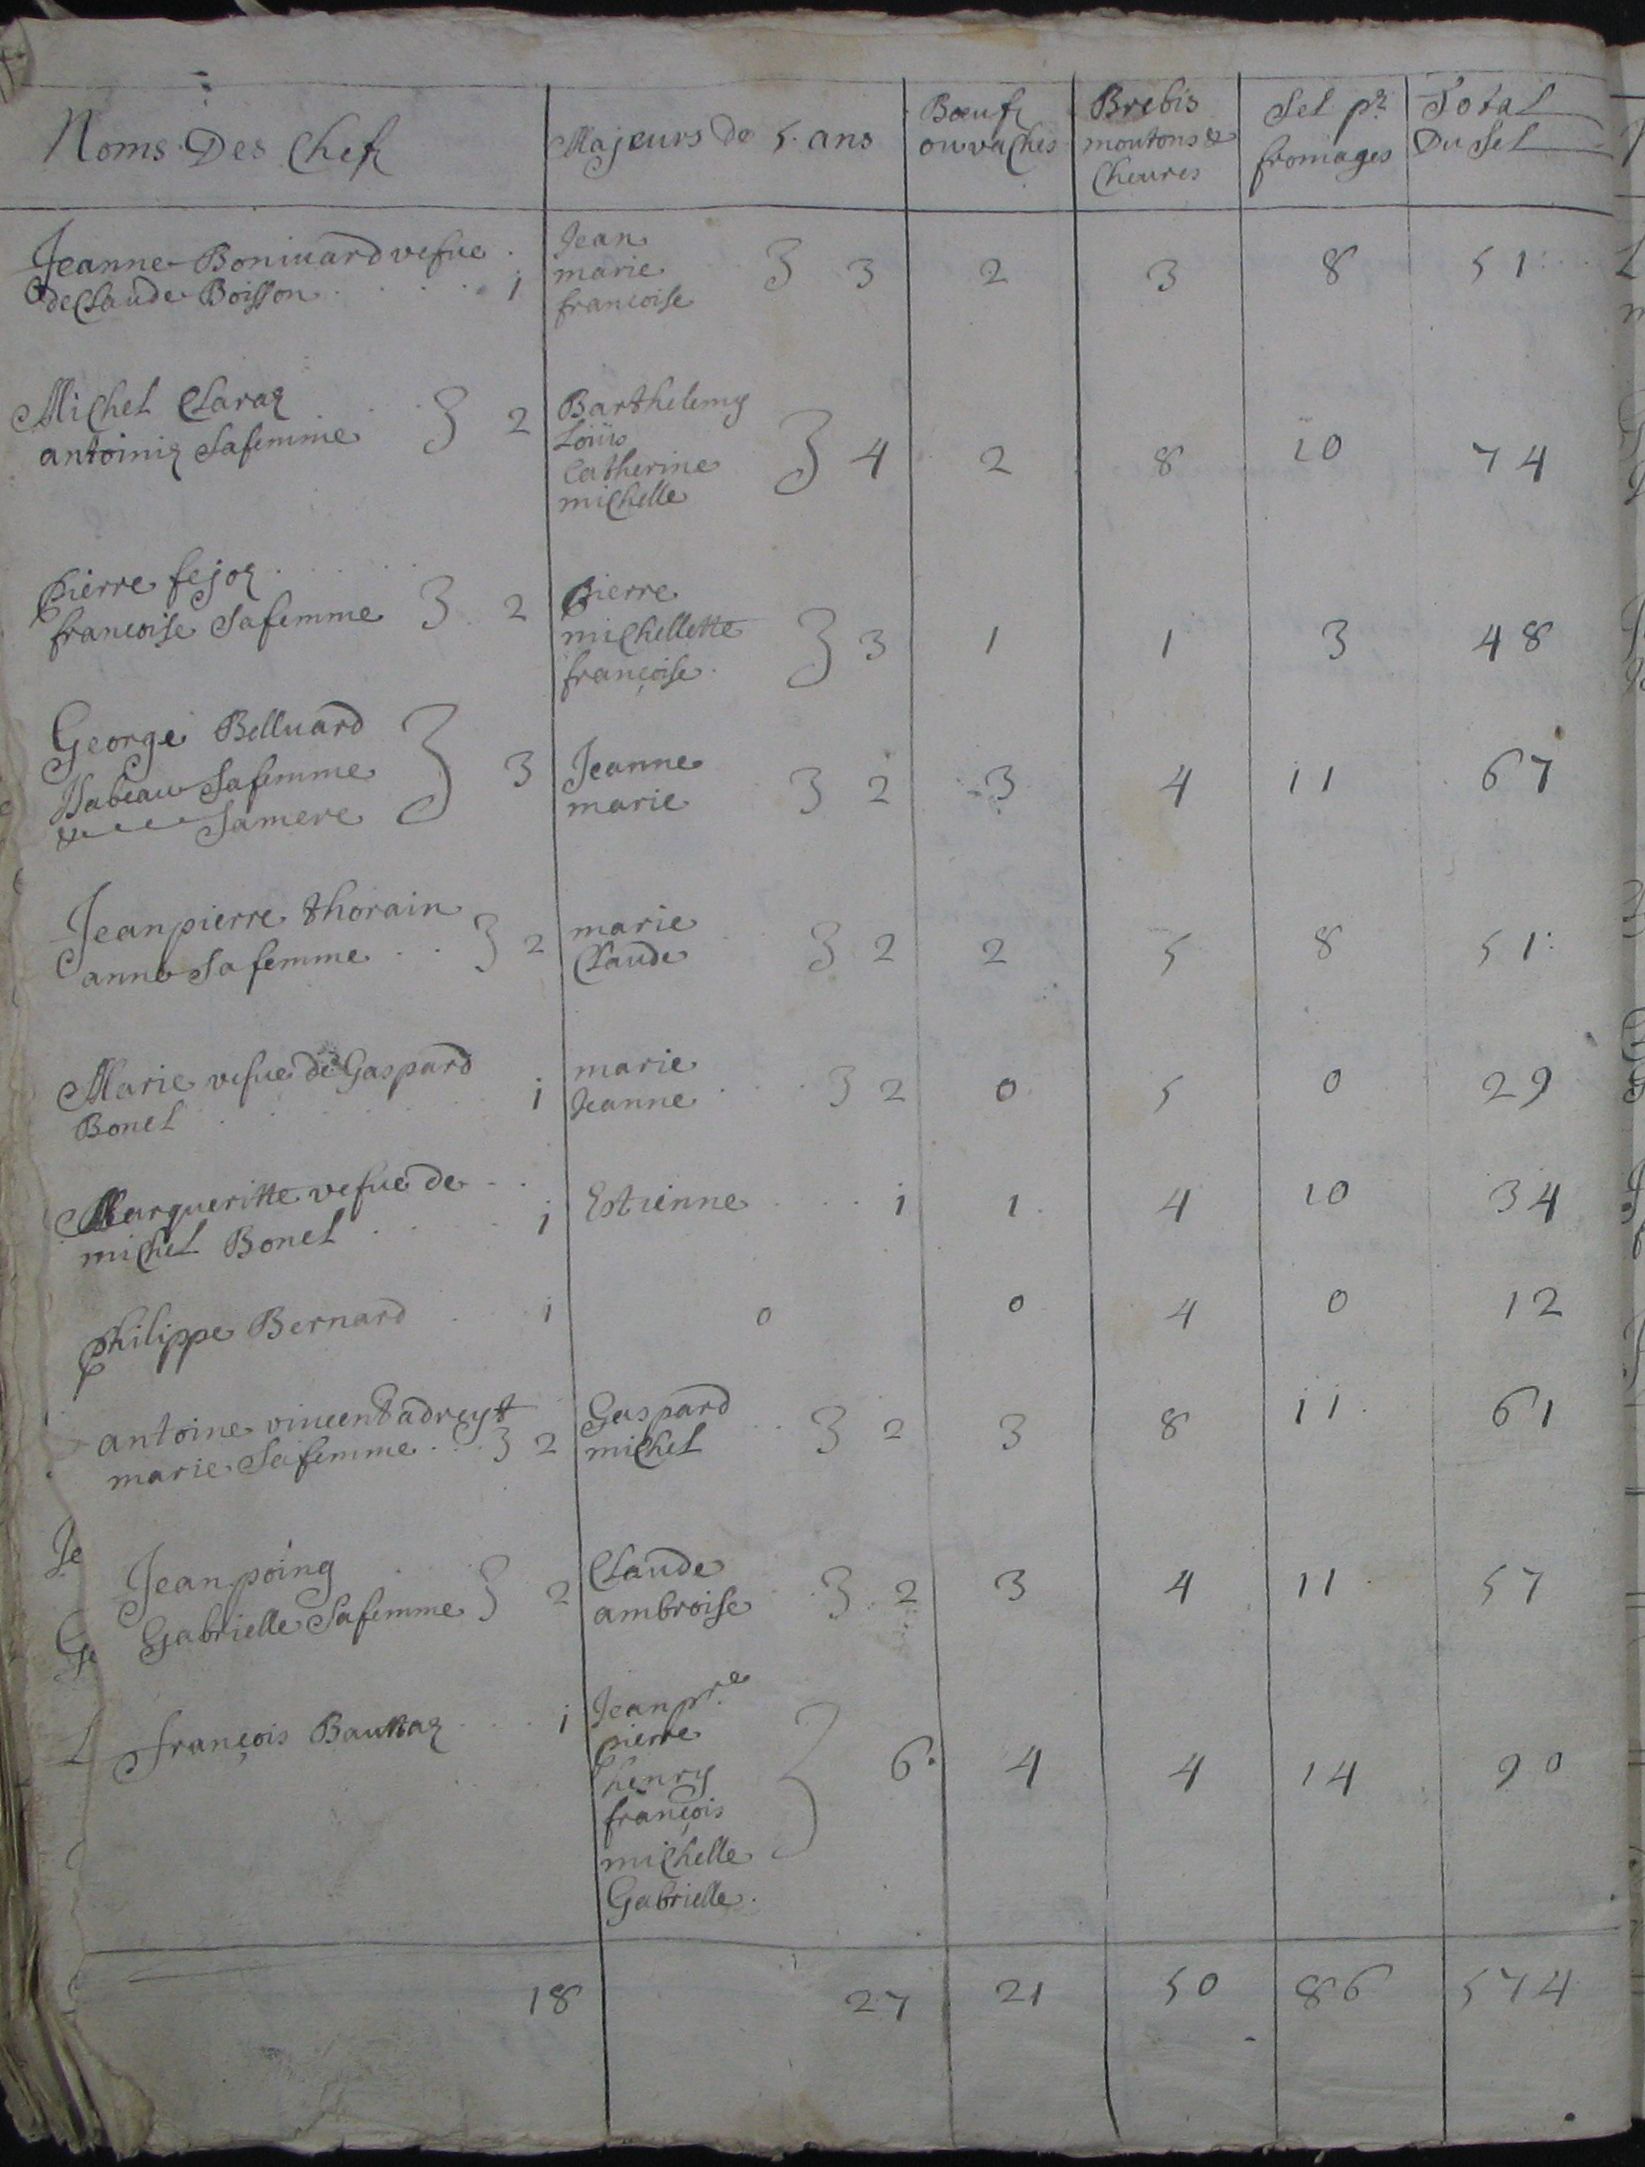 Noms Des Chefz | Majeurs De 5. ans | Bœufz ou vaches | Brebis moutons & Cheures | Sel pr. fromages | Total Du Sel
Jeanne Boniuard vefue
de Claude Boisson . . . . 1 | Jean marie francoise } 3 | 2 | 3 | 8 | 51
Michel Claraz
antoiniz Safemme } 2 | Barthelemy Loüis Catherine michelle } 4 | 2 | 8 | 10 | 74
Pierre fejoz
francoise Safemme } 2 | Pierre michellette françoise } 3 | 1 | 1 | 3 | 48
George Belluard
Ysabeau Safemme
& Samere } 3 | Jeanne marie } 2 | 3 | 4 | 11 | 67
Jeanpierre thorain
anne Safemme } 2 | marie Claude } 2 | 2 | 5 | 8 | 51
Marie vefue de Gaspard
Bonel 1 | marie Jeanne } 2 | 0 | 5 | 0 | 29
Margueritte vefue de
michel Bonel 1 | Estienne 1 | 1 | 4 | 10 | 34
Philippe Bernard 1 | 0 | 0 | 4 | 0 | 12
antoine vincent adreyt
marie Safemme } 2 | Gaspard michel } 2 | 3 | 8 | 11 | 61
Jean poing
Gabrielle Safemme } 2 | Claude ambroise } 2 | 3 | 4 | 11 | 57
françois Bauttaz 1 | Jean pre pierre henry françois michelle Gabrielle } 6 | 4 | 4 | 14 | 90
18 | 27 | 21 | 50 | 86 | 574